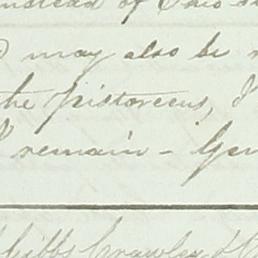 instead of
may also be
the pistoreens, I
I remain - Gen
Gibbs Crawley &